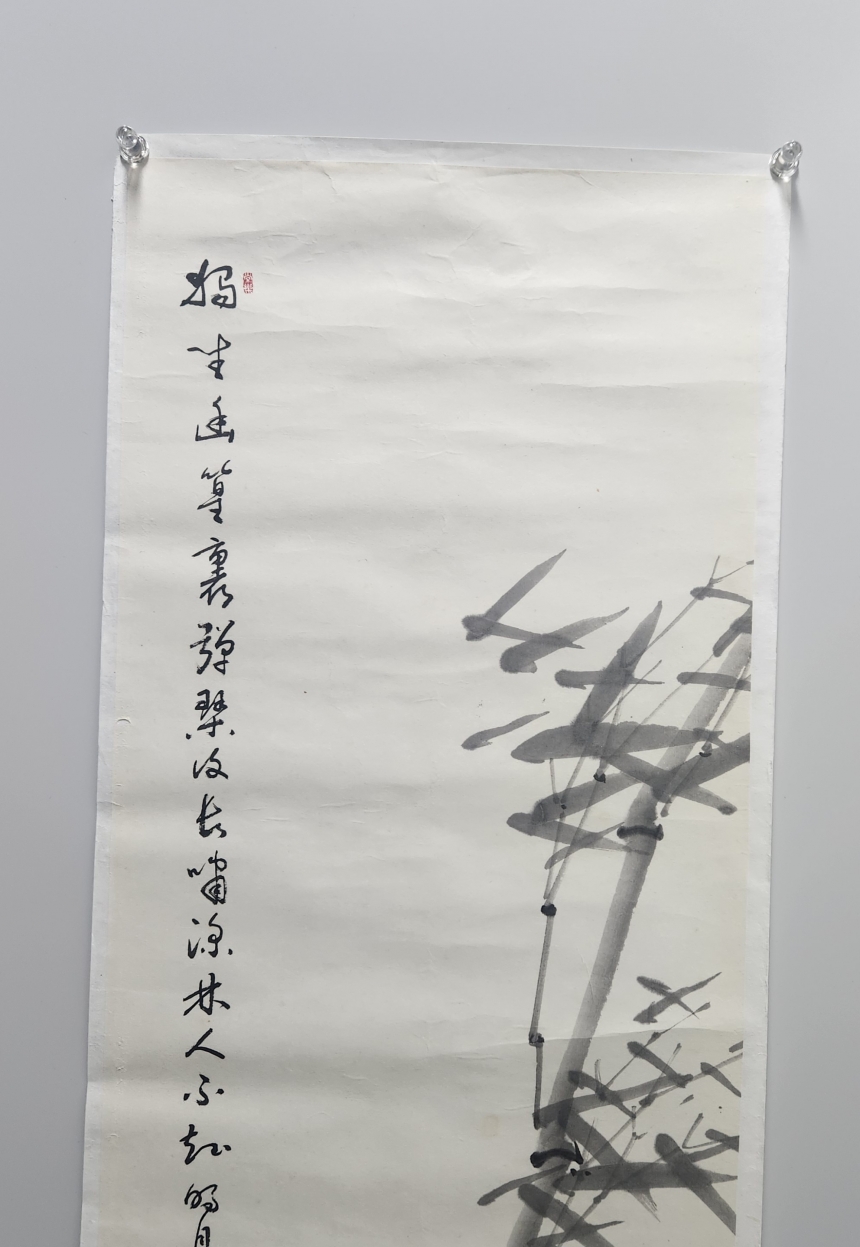 獨坐幽篁裏彈琴復長嘯深林人不知明月